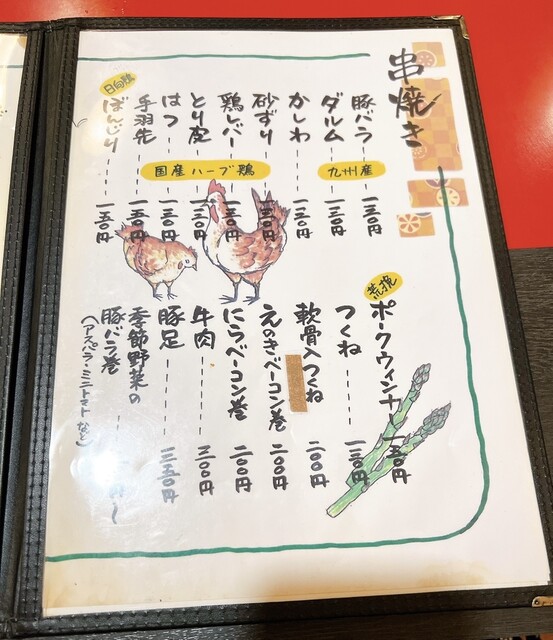 串焼き
九州産
豚バラ 一三〇円
ダルム 一三〇円
国産ハーブ鶏
かしわ 一三〇円
砂ずり 一三〇円
鶏レバー 一三〇円
とり皮 一三〇円
はつ 一三〇円
手羽先 一五〇円
日向鶏
ぼんじり 一五〇円
荒挽
ポークウィンナー 一五〇円
つくね 一三〇円
軟骨入つくね 二〇〇円
えのきベーコン巻 二〇〇円
にらベーコン巻 二〇〇円
牛肉 三〇〇円
豚足 三五〇円
季節野菜の
豚バラ巻 円〜
(アスパラ・ミニトマトなど)